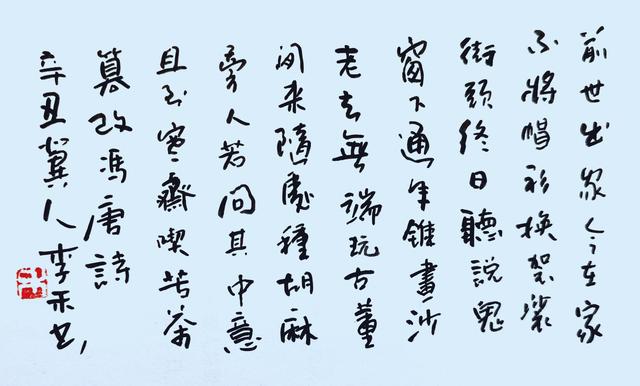 前世出家今在家
不將帽衫換袈裟
街頭終日聽說鬼
窗下通年錐畫沙
老去無端玩古董
闲来隨處種胡麻
旁人若问其中意
且到寒齋喫苦茶
篡改馮唐詩
辛丑冀人李禾书